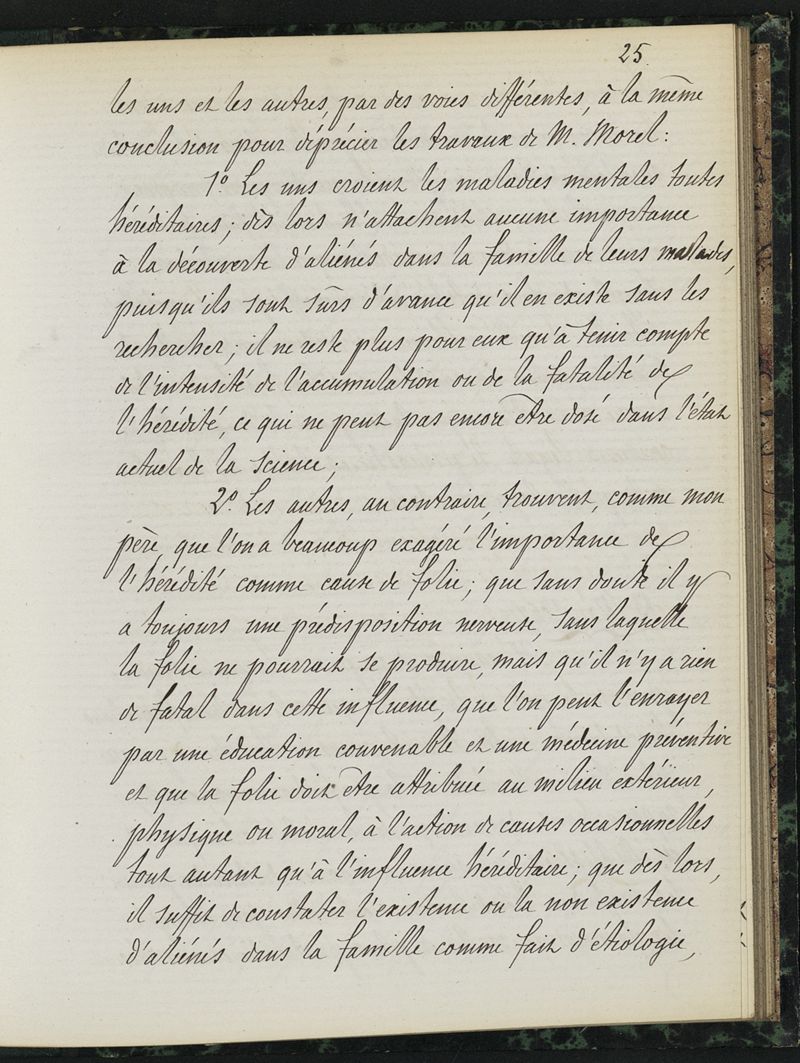 25.
les uns et les autres, par des voies différentes, à la même
conclusion pour déprécier les travaux de M. Morel :
1.° Les uns croient les maladies mentales toutes
héréditaires ; dès lors n'attachent aucune importance
à la découverte d'aliénés dans la famille de leurs malades,
puisqu'ils sont sûrs d'avance qu'il en existe sans les
rechercher ; il ne reste plus pour eux qu'à tenir compte
de l'intensité de l'accumulation ou de la fatalité de
l'hérédité, ce qui ne peut pas encore être dosé dans l'état
actuel de la science ;
2.° Les autres, au contraire, trouvent, comme mon
père, que l'on a beaucoup exagéré l'importance de
l'hérédité comme cause de folie ; que sans doute il y
a toujours une prédisposition nerveuse, sans laquelle
la folie ne pourrait se produire, mais qu'il n'y a rien
de fatal dans cette influence, que l'on peut l'enrayer
par une éducation convenable et une médecine préventive
et que la folie doit être attribuée au milieu extérieur,
physique ou moral, à l'action de causes occasionnelles
tout autant qu'à l'influence héréditaire ; que dès lors,
il suffit de constater l'existence ou la non existence
d'aliénés dans la famille comme fait d'étiologie,